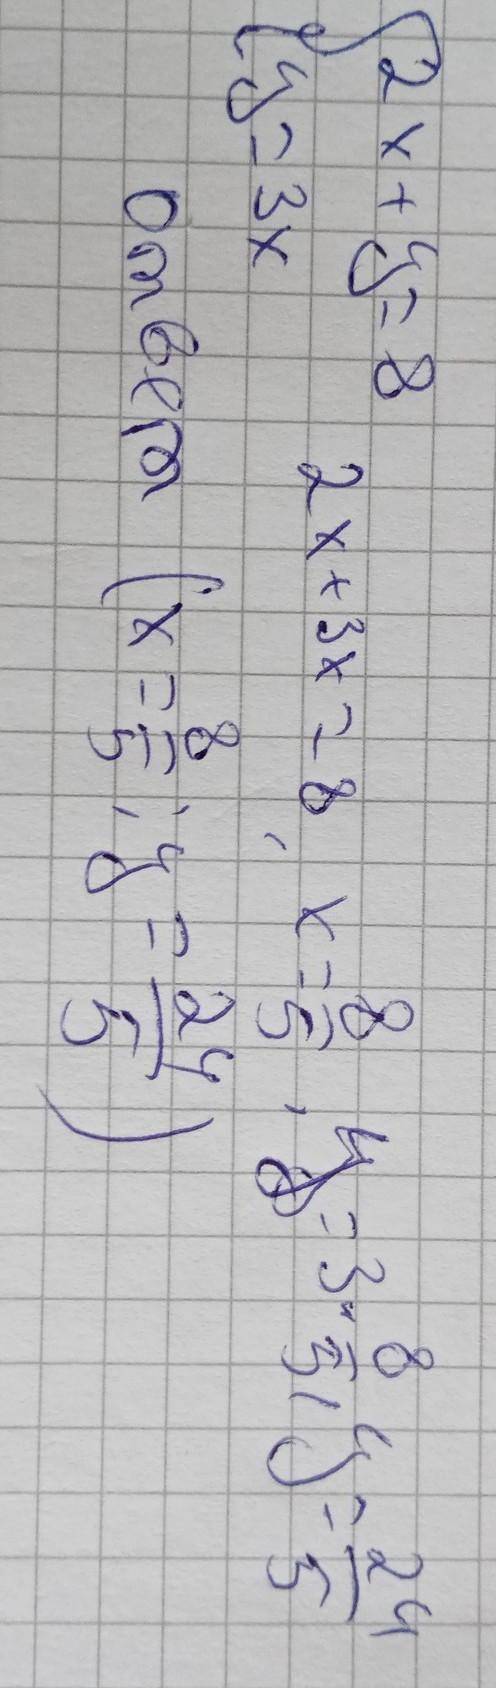 { 2x + y = 8
{ y = 3x
2x + 3x = 8, x = 8/5, y = 3 · 8/5, y = 24/5
ответ (x = 8/5; y = 24/5)